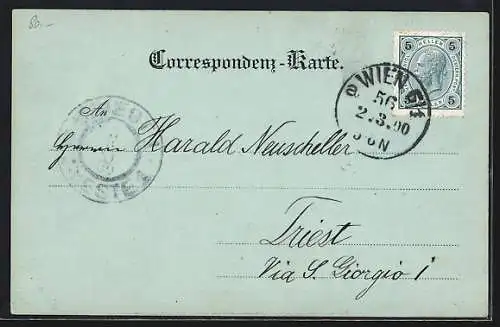 80.–
Correspondenz-Karte.
5 HELLER 5
5 5
WIEN 6/1
56
2.3.00
An
Herrn Harald Neuscheller
Triest
Via S. Giorgio 1